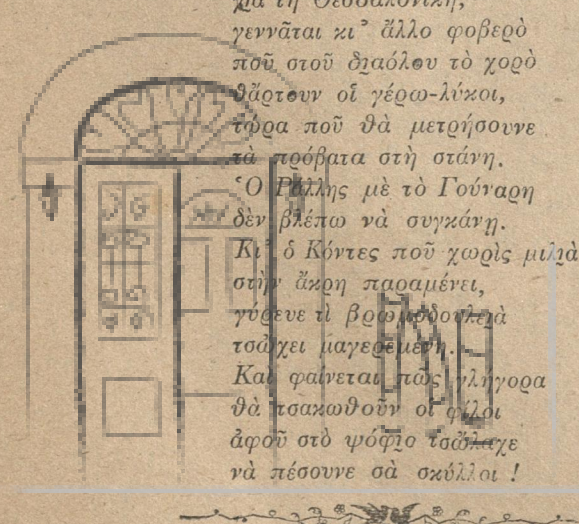 γιὰ τὴ Θεσσαλονίκη,
γεννᾶται κι᾿ ἄλλο φοβερὸ
ποῦ στοῦ διαόλου τὸ χορὸ
θἄρτουν οἱ γέρω-λύκοι,
τώρα ποῦ θὰ μετρήσουνε
τὰ πρόβατα στὴ στάνη.
Ὁ Ράλλης μὲ τὸ Γούναρη
δὲν βλέπω νὰ συγκάνῃ.
Κι᾿ ὁ Κόντες ποῦ χωρὶς μιλιὰ
στὴν ἄκρη παραμένει,
γύρευε τὶ βρωμοδουλειὰ
τσὤχει μαγερεμένη.
Καὶ φαίνεται πῶς γλήγορα
θὰ τσακωθοῦν οἱ φίλοι
ἀφοῦ στὸ ψόφιο τσὤλαχε
νὰ πέσουνε σὰ σκύλλοι !